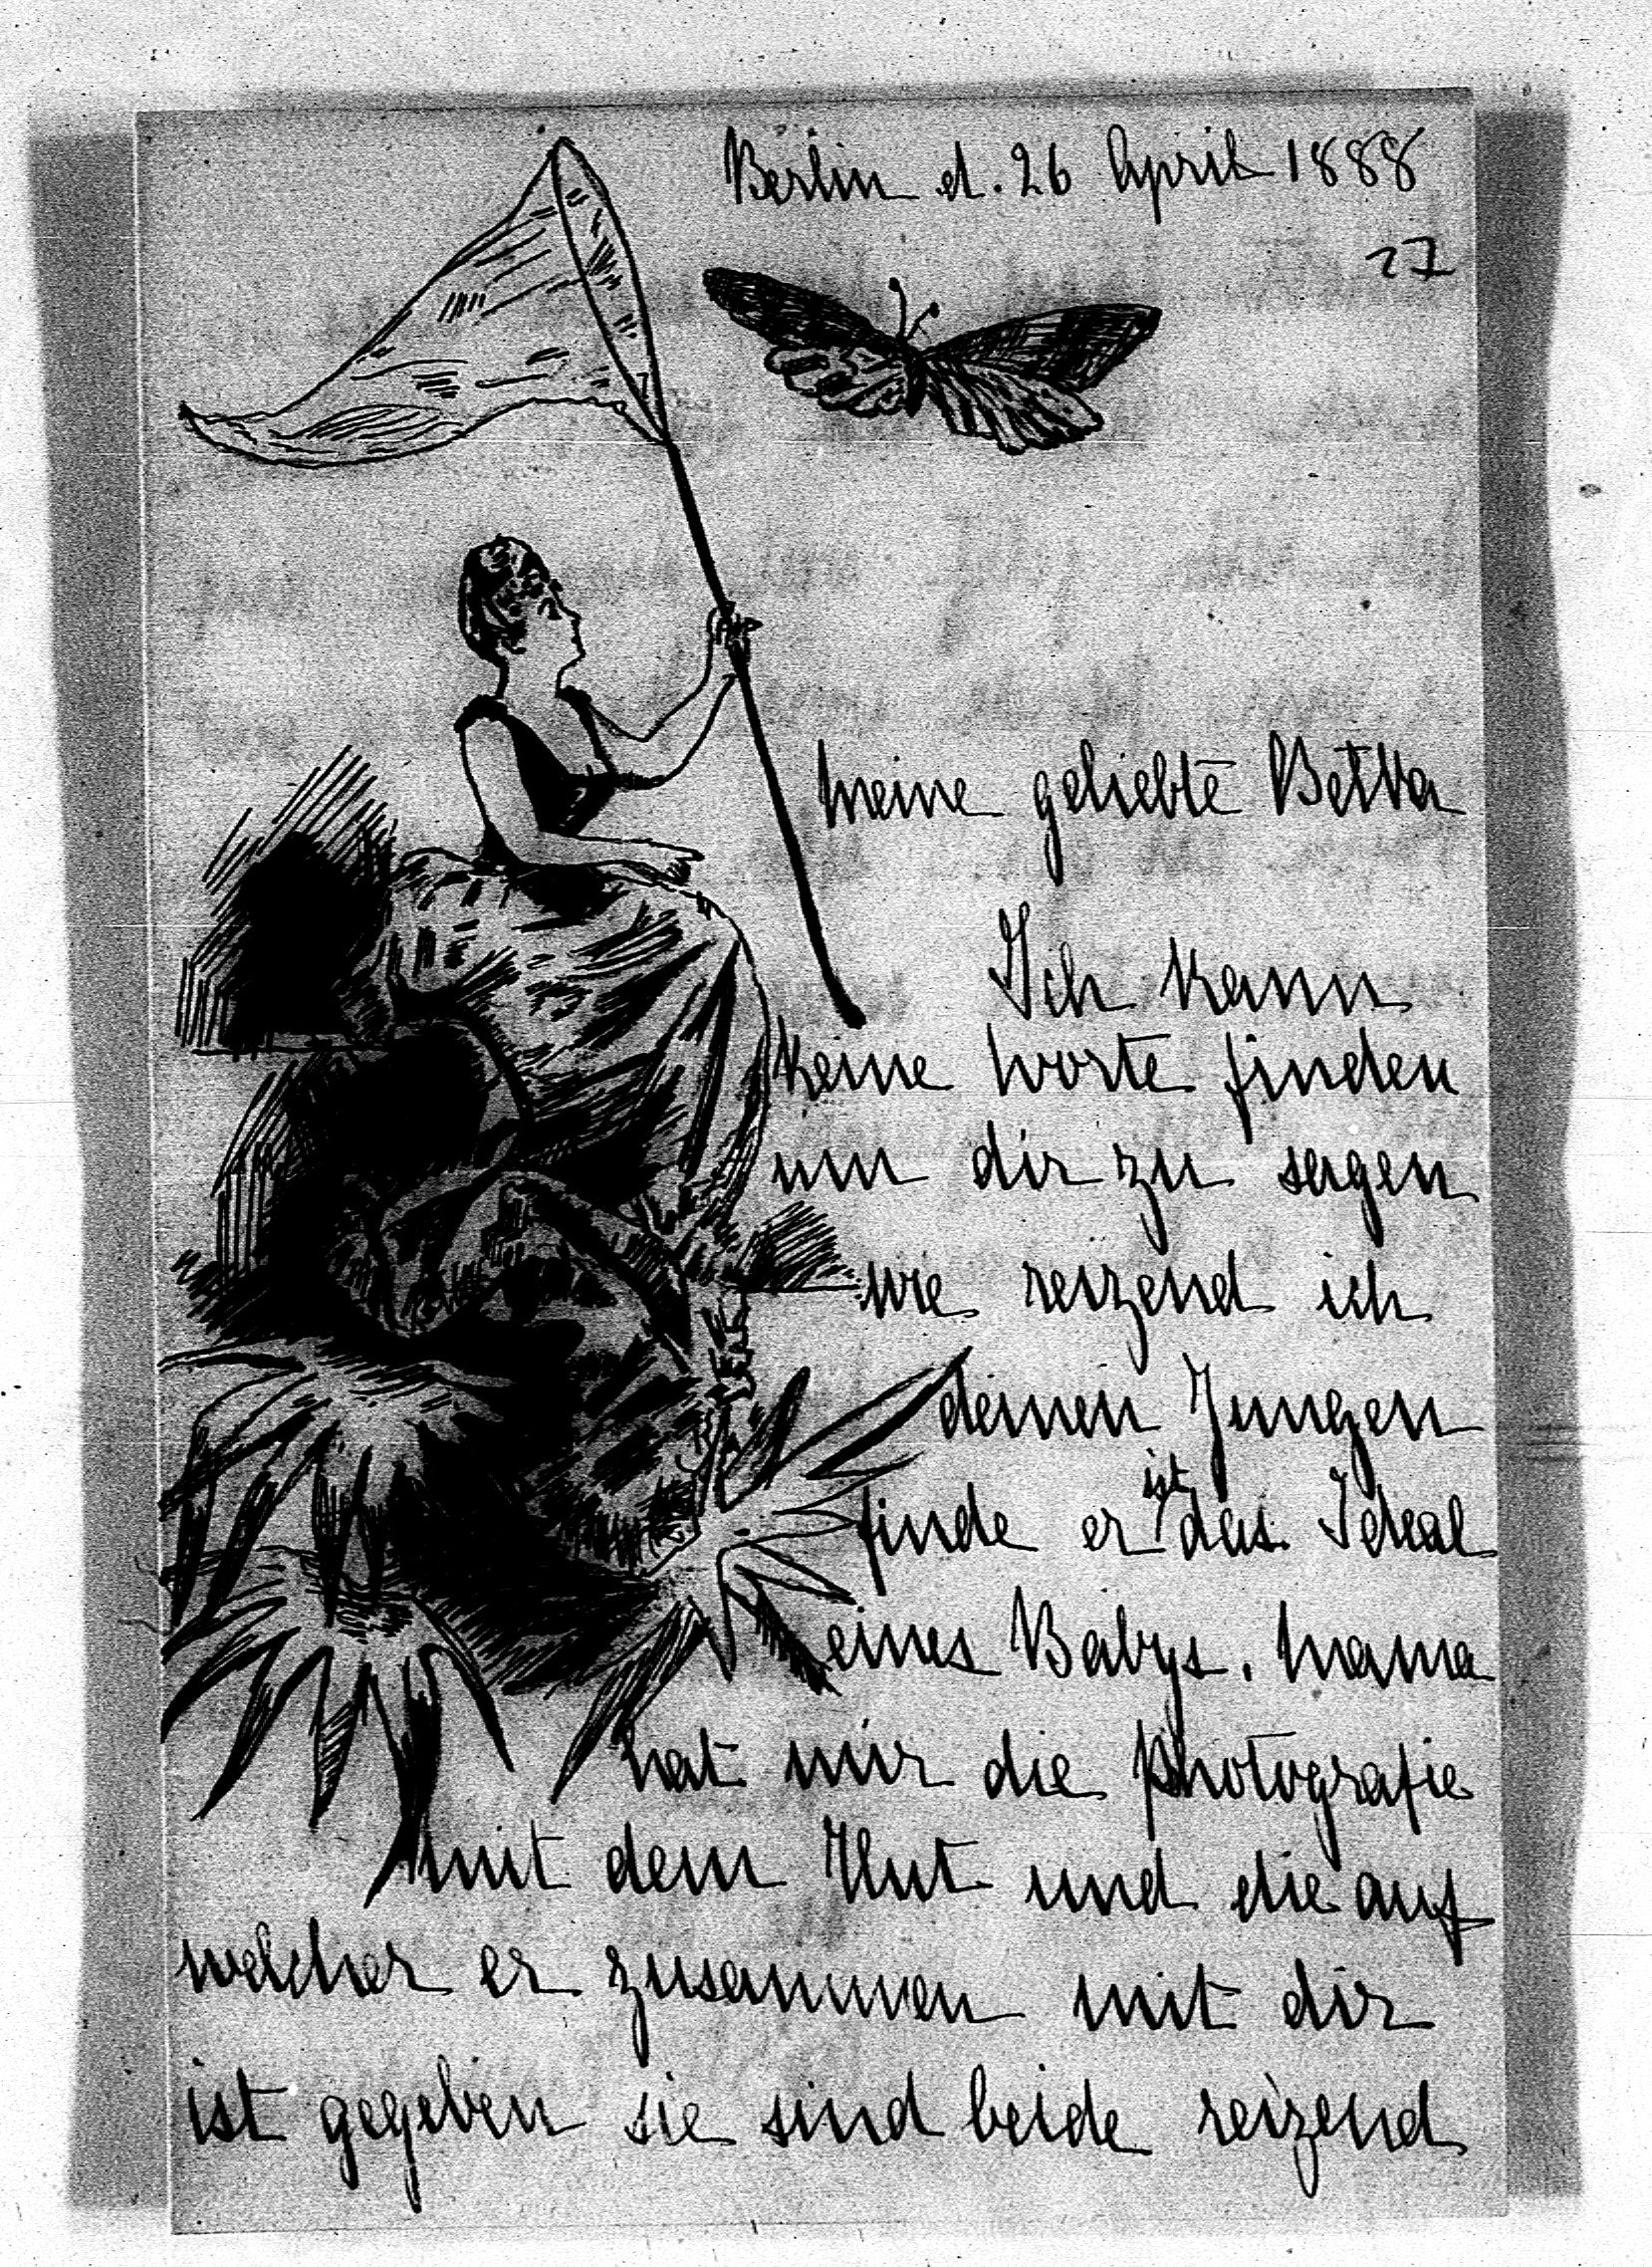 Berlin d. 26 April 1888
27
Meine geliebte Betka
Ich kann
keine worte finden
um dir zu sagen
wie reizend ich
deinen Jungen
finde er ist das Ideal
eines Babys. Mama
hat mir die Photografie
mit dem Hut und die auf
welcher er zusammen mit dir
ist gegeben sie sind beide reizend